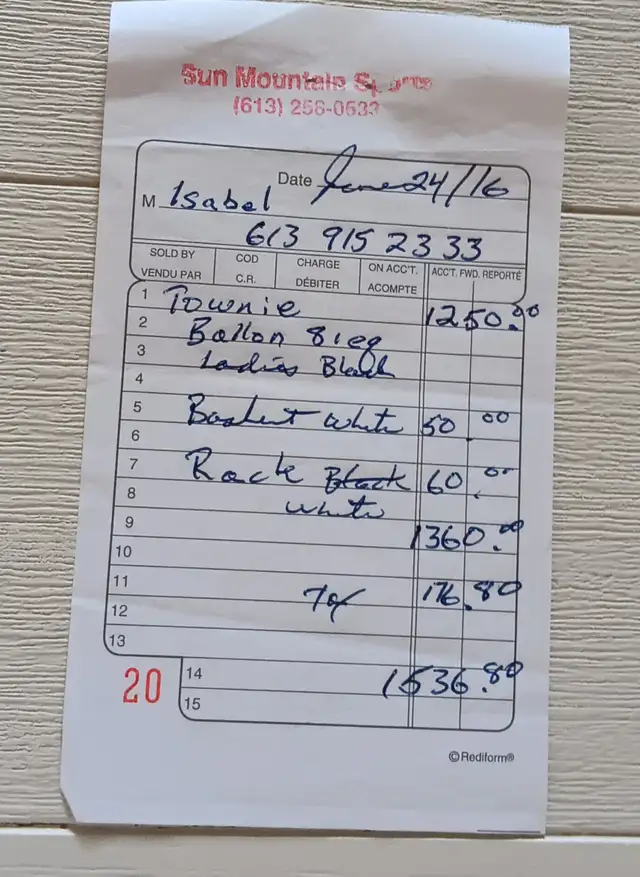 Sun Mountain Sports
(613) 258-0633
Date June 24/16
M Isabel
613 915 2333
SOLD BY COD CHARGE ON ACC'T. ACC'T. FWD. REPORTÉ
VENDU PAR C.R. DÉBITER ACOMPTE
1 Townie 1250.00
2 Ballon 8 ieq
3 Ladies Black
4
5 Basket white 50.00
6
7 Rack Black 60.00
8 white
9 1360.00
10
11 Tax 176.80
12
13
20 14 1536.80
15
©Rediform®